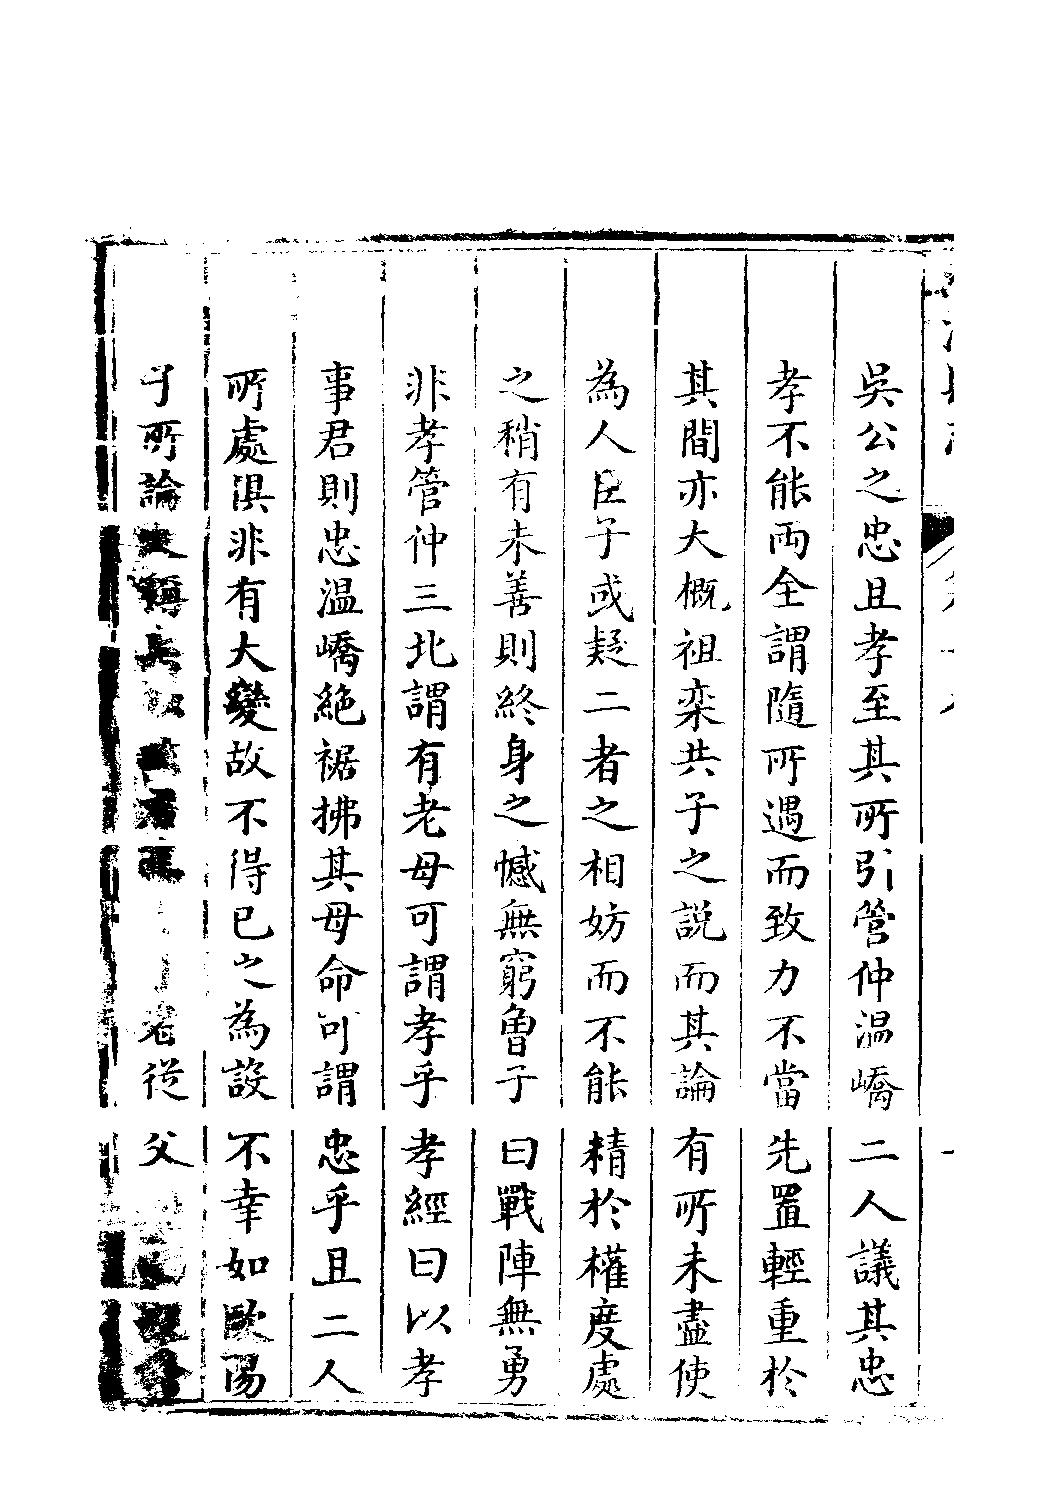 吳公之忠且孝至其所引管仲温嶠二人議其忠
孝不能両全謂隨所遇而致力不當先置輕重於
其間亦大概祖栾共子之説而其論有所未盡使
為人臣子或疑二者之相妨而不能精於權度處
之稍有未善則終身之憾無窮魯子曰戰陣無勇
非孝管仲三北謂有老母可謂孝乎孝經曰以孝
事君則忠温嶠絶裾拂其母命可謂忠乎且二人
所處俱非有大變故不得已之為設不幸如歐陽
子所論
者從父